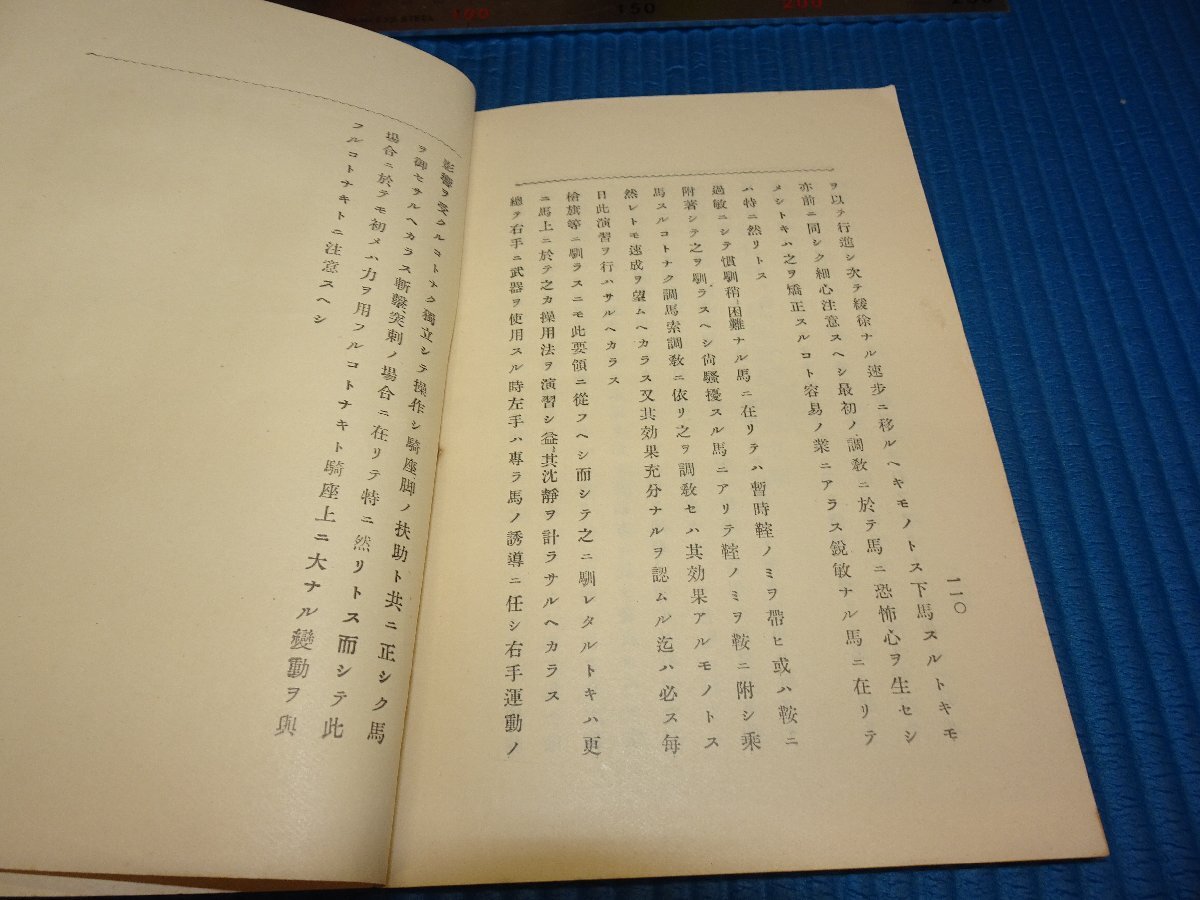 一一〇
ヲ以テ行進シ次テ緩徐ナル速步ニ移ルヘキモノトス下馬スルトキモ
亦前ニ同シク細心注意スヘシ最初ノ調敎ニ於テ馬ニ恐怖心ヲ生セシ
メシトキハ之ヲ矯正スルコト容易ノ業ニアラス銳敏ナル馬ニ在リテ
ハ特ニ然リトス
過敏ニシテ慣馴稍〻困難ナル馬ニ在リテハ暫時鞚ノミヲ帶ヒ或ハ鞍ニ
附著シテ之ヲ馴ラスヘシ尙騷擾スル馬ニアリテ鞚ノミヲ鞍ニ附シ乘
馬スルコトナク調馬索調敎ニ依リ之ヲ調敎セハ其効果アルモノトス
然レトモ速成ヲ望ムヘカラス又其効果充分ナルヲ認ムル迄ハ必ス每
日此演習ヲ行ハサルヘカラス
槍旗等ニ馴ラスニモ此要領ニ從フヘシ而シテ之ニ馴レタルトキハ更
ニ馬上ニ於テ之カ操用法ヲ演習シ益〻其沈靜ヲ計ラサルヘカラス
總テ右手ニ武器ヲ使用スル時左手ハ專ラ馬ノ誘導ニ任シ右手運動ノ
影響ヲ受クルコトナク獨立シテ操作シ騎座脚ノ扶助ト共ニ正シク馬
ヲ御セサルヘカラス斬擊、突刺ノ場合ニ在リテ特ニ然リトス而シテ此
場合ニ於テモ初メハ力ヲ用フルコトナキト騎座上ニ大ナル變動ヲ與
フルコトナキトニ注意スヘシ
100
150
200